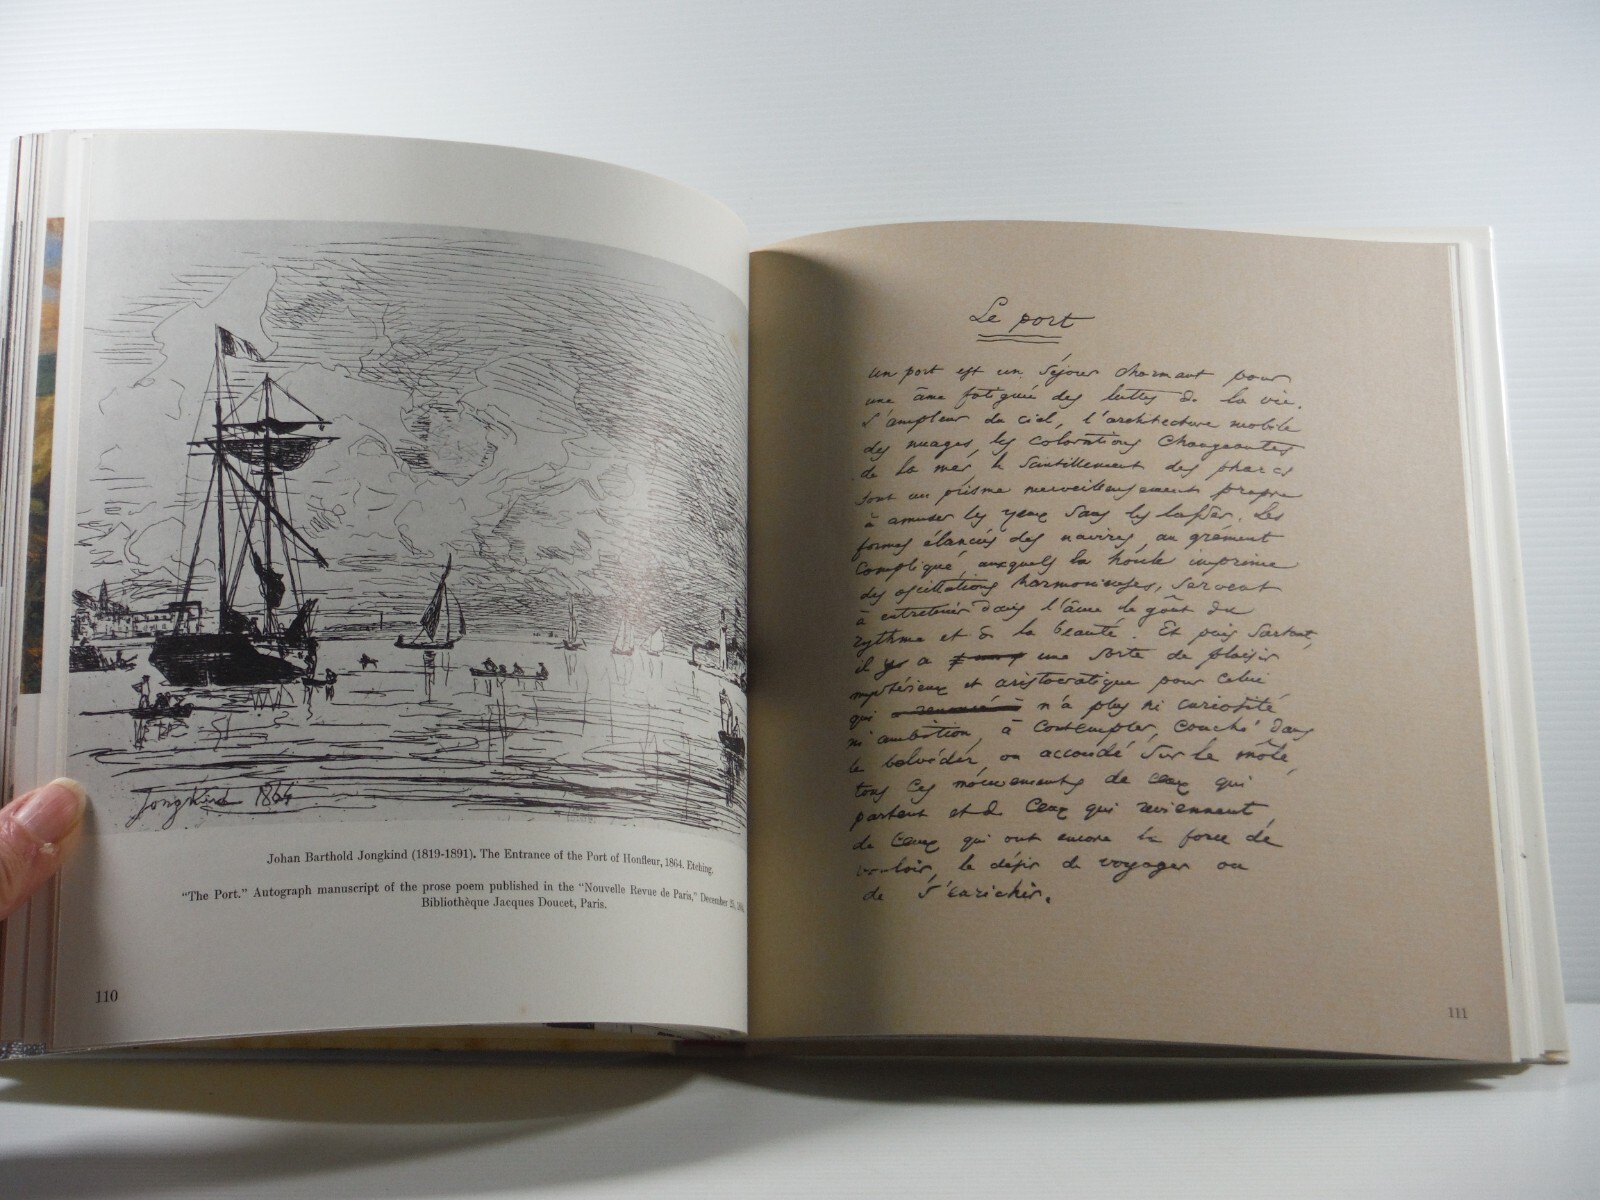 Jongkind 1864
Johan Barthold Jongkind (1819-1891). The Entrance of the Port of Honfleur, 1864. Etching.
"The Port." Autograph manuscript of the prose poem published in the "Nouvelle Revue de Paris," December 25,
Bibliothèque Jacques Doucet, Paris.
110
Le port
un port est un séjour charmant pour
une âme fatiguée des luttes de la vie.
L'ampleur du ciel, l'architecture mobile
des nuages, les colorations changeantes
de la mer, le scintillement des phares
sont un prisme merveilleusement propre
à amuser les yeux sans les lasser. Les
formes élancées des navires, au gréement
compliqué, auxquels la houle imprime
des oscillations harmonieuses, servent
à entretenir dans l'âme le goût du
rythme et de la beauté. Et puis, surtout,
il y a une sorte de plaisir
mystérieux et aristocratique pour celui
qui n'a plus ni curiosité
ni ambition, à contempler, couché dans
le belvédér, ou accoudé sur le môle,
tous ces mouvements de ceux qui
partent et de ceux qui reviennent,
de ceux qui ont encore la force de
vouloir, le désir de voyager ou
de s'enrichir.
111